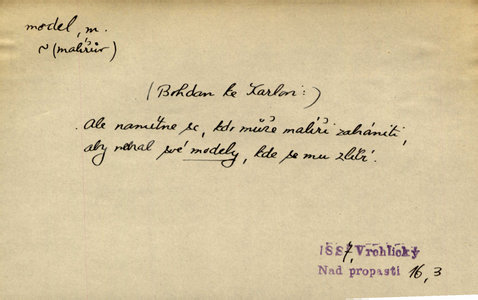 model, m.
~ (malířův)
(Bohdan ke Karlovi:)
Ale namítne se, kdo může malíři zabrániti,
aby nebral své modely, kde se mu zlíbí.
1887, Vrchlický
Nad propastí 16,3